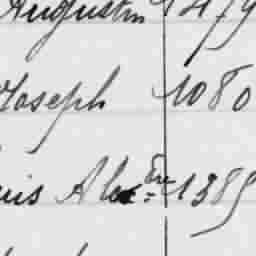 Augustin 1479
Joseph 1080
uis Alex^dre 1389